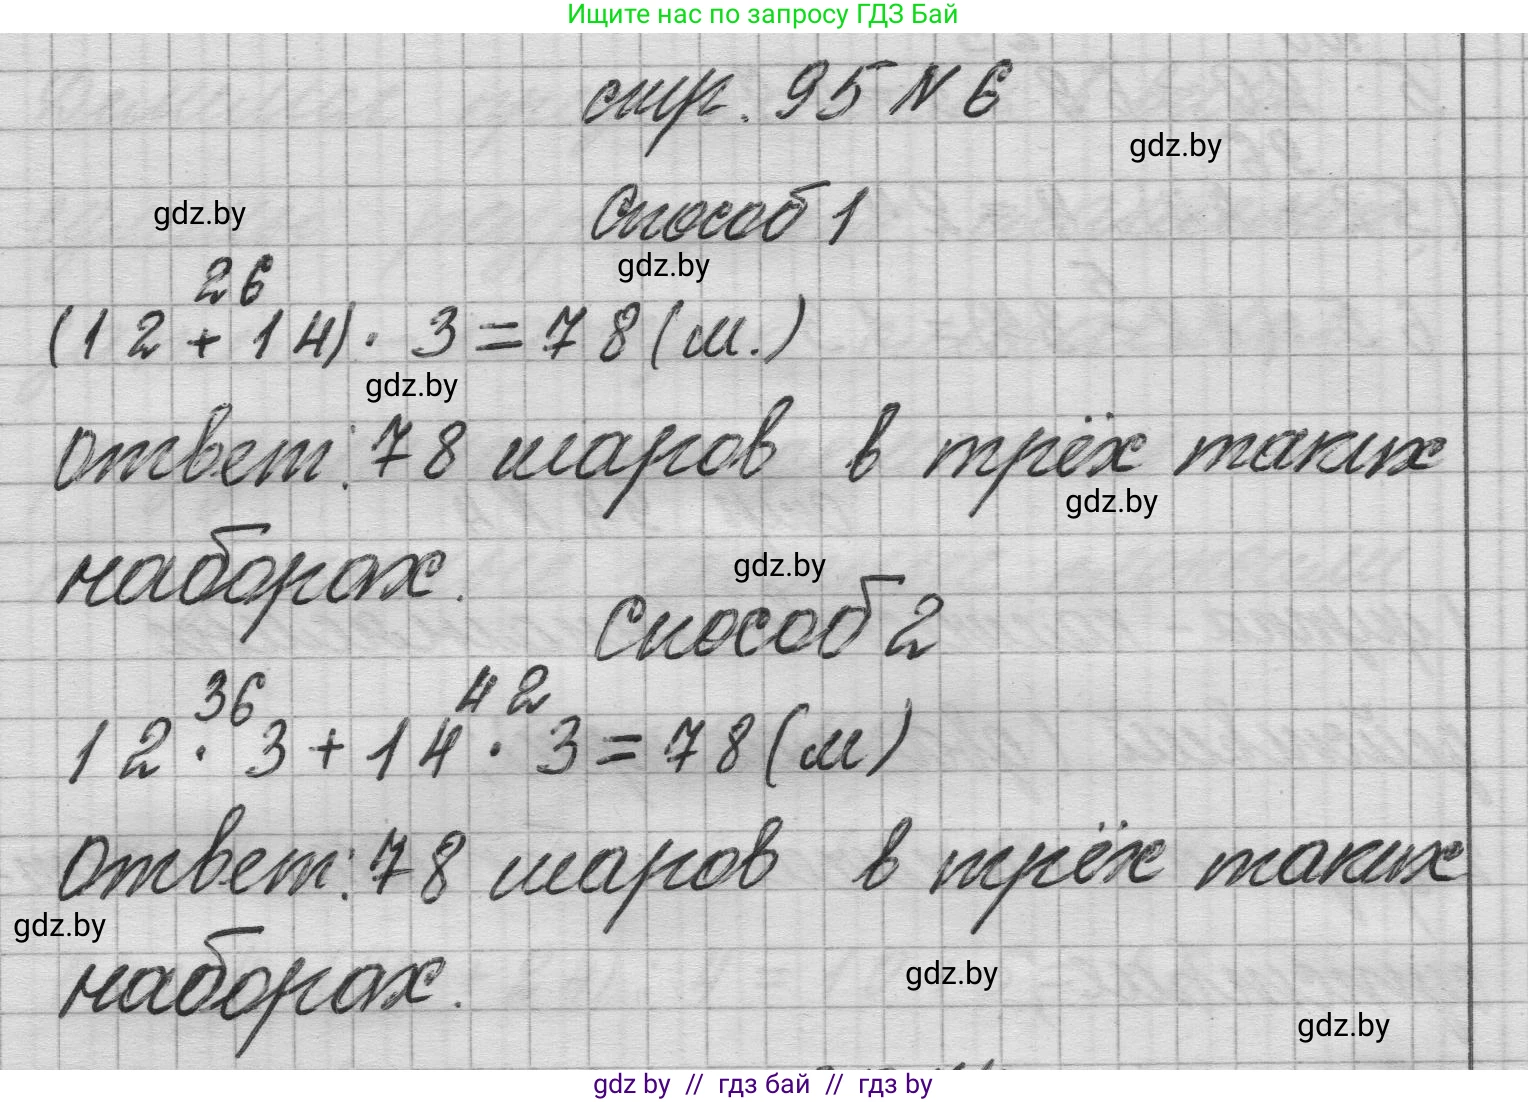 Ищите нас по запросу ГДЗ Бай
стр. 95 N 6
gdz.by
gdz.by
Способ 1
gdz.by
26
(12 + 14) · 3 = 78 (ш.)
gdz.by
ответ: 78 шаров в трёх таких
gdz.by
наборах.
gdz.by
Способ 2
36 42
12 · 3 + 14 · 3 = 78 (ш)
ответ: 78 шаров в трёх таких
gdz.by
наборах.
gdz.by
gdz.by
gdz by // гдз бай // гдз by